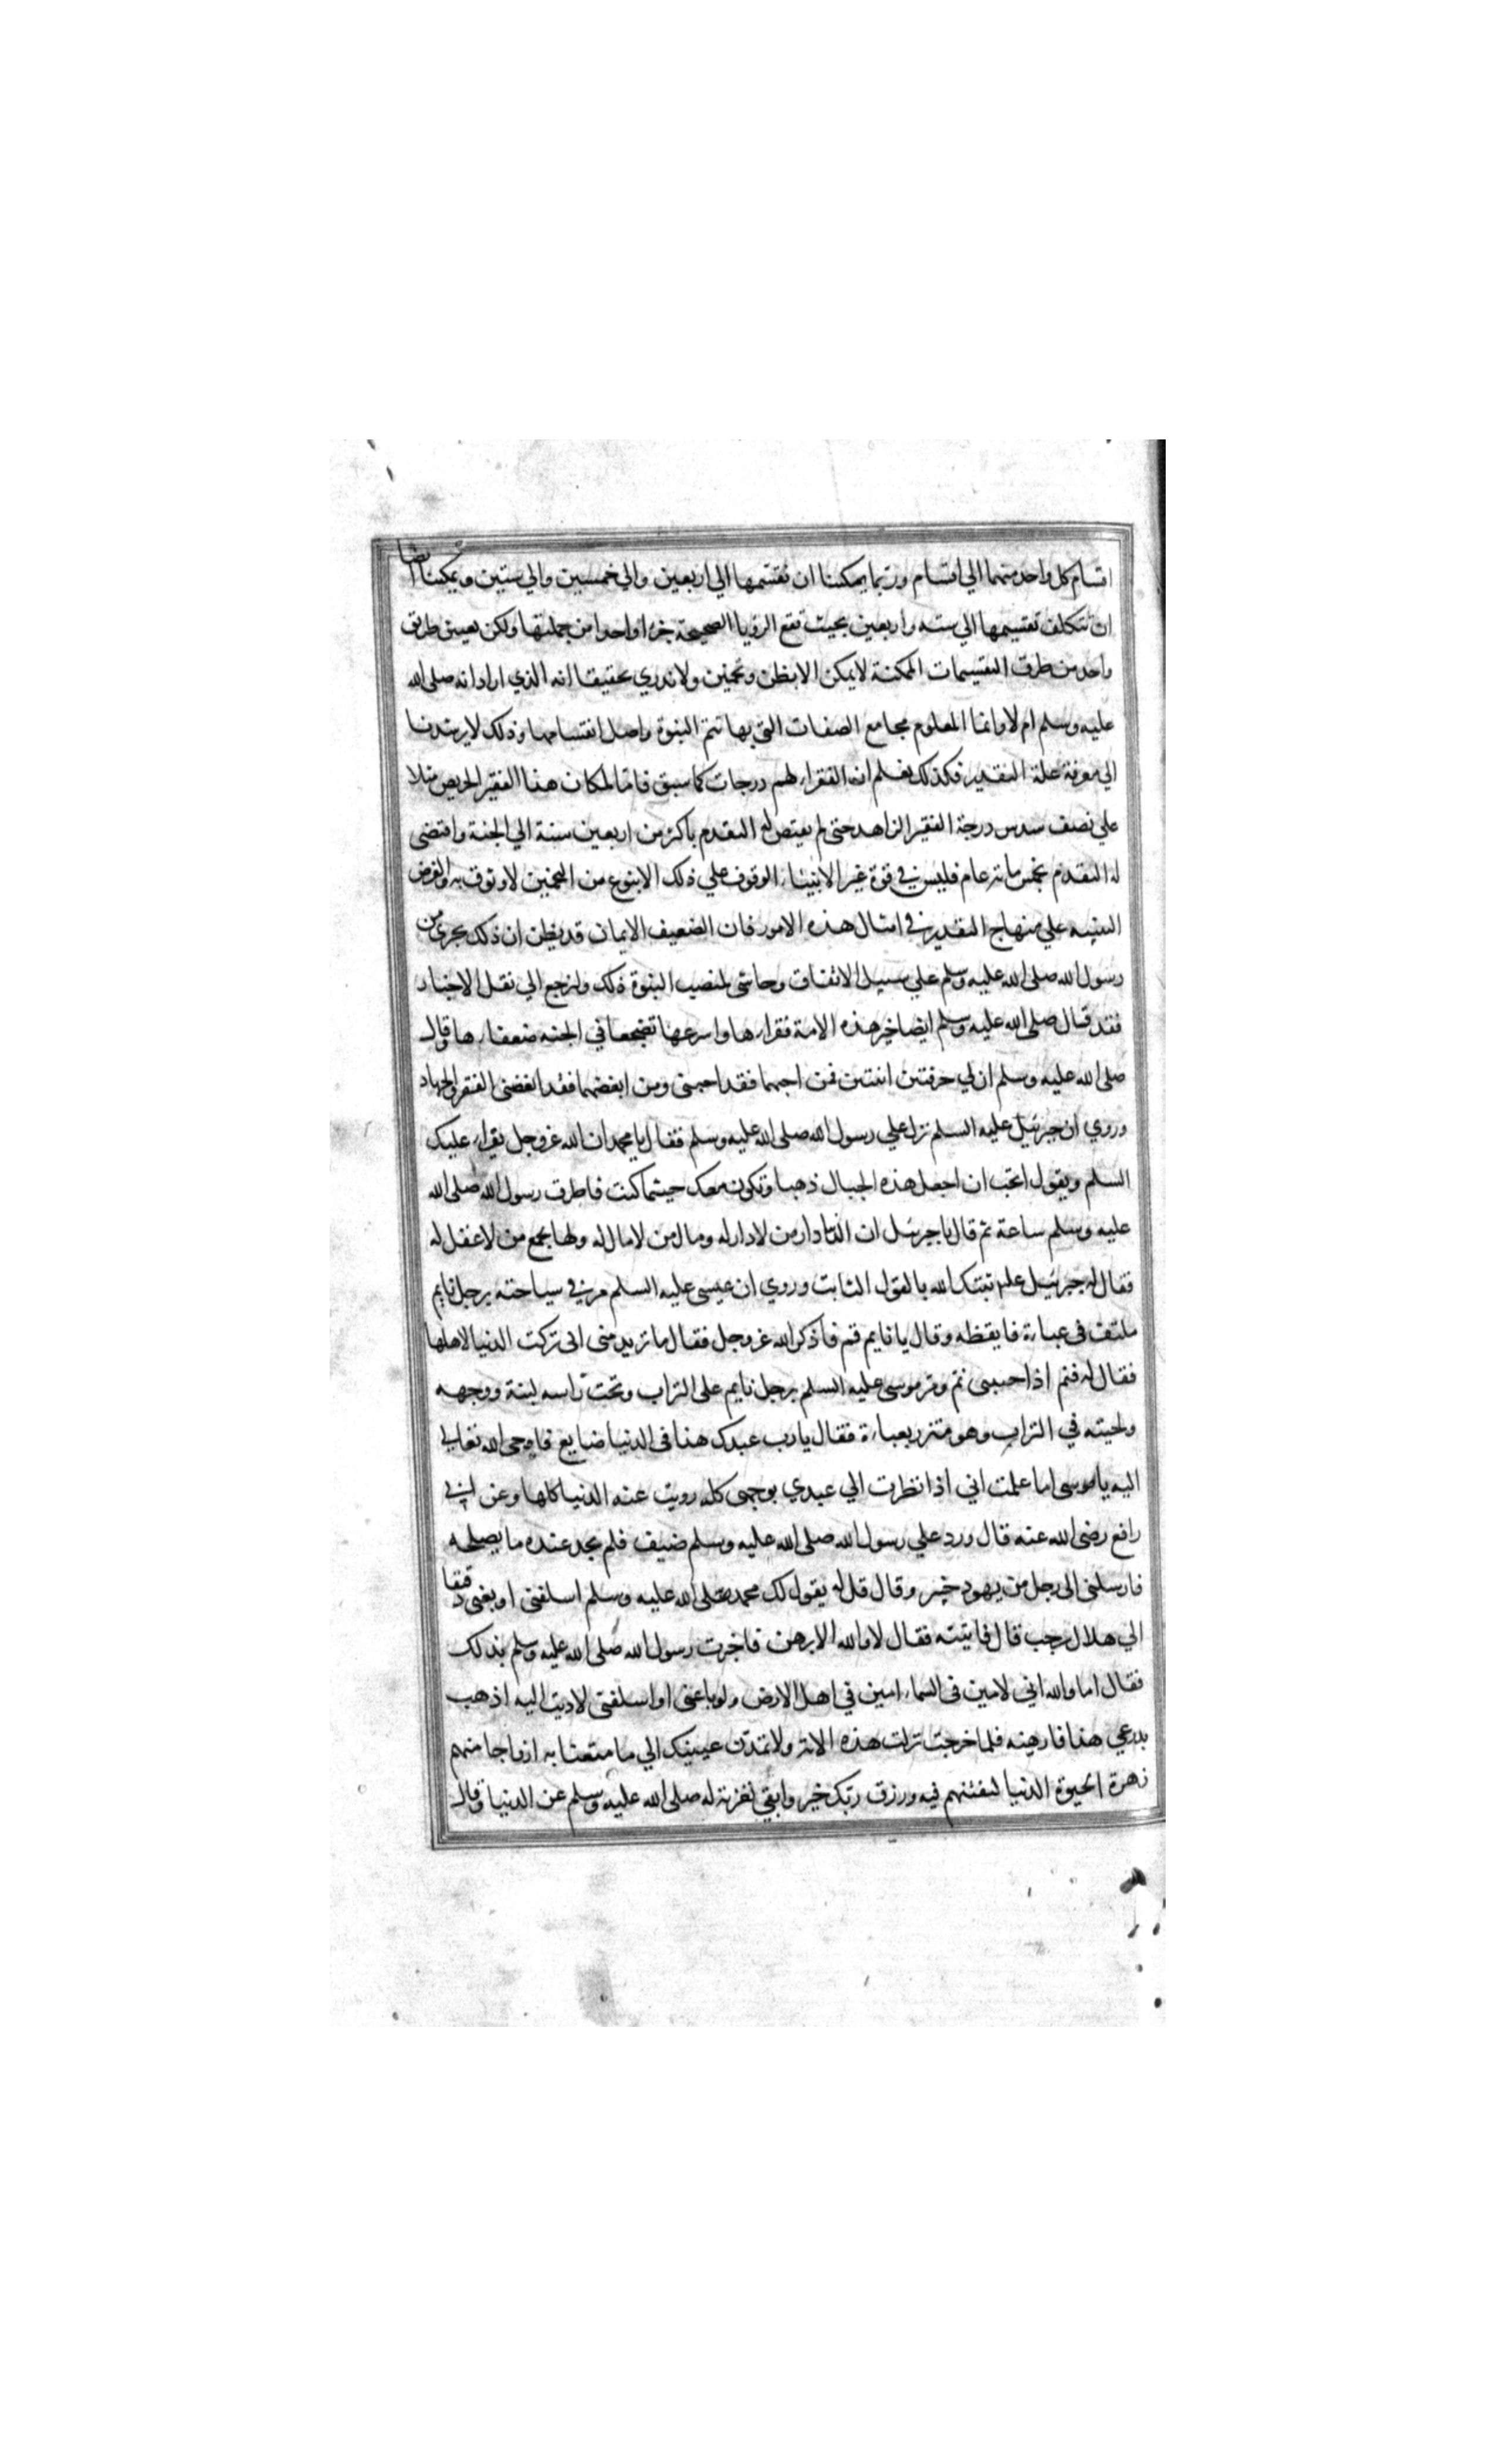 اقسام كل واحد منهما الي اقسام وربما يمكننا ان نقسمها الي اربعين والي خمسين والي ستين ويمكننا ايضا
ان نتكلف تقسيمها الي سته واربعين بحيث تقع الرؤيا الصحيحة جزءا واحدا من جملتها ولكن تعيين طريق
واحد من طرق التقسيمات الممكنة لا يمكن الا بظن وتخمين ولا ندري تحقيقا انه الذي اراده صلى الله
عليه وسلم ام لا وانما المعلوم مجامع الصفات التي بها تتم النبوة واصل انقسامها وذلك لا يرشدنا
الي معرفة علة التقدير فكذلك نعلم ان الفقراء لهم درجات كما سبق فاما لم كان هذا الفقير الحريص مثلا
علي نصف سدس درجة الفقير الزاهد حتى لم يقتض له التقدم باكثر من اربعين سنة الي الجنة واقتضى
له التقدم بخمس مائة عام فليس في قوة غير الانبياء الوقوف علي ذلك الا بنوع من التخمين لا وثوق به والغرض
التنبيه علي منهاج التقدير في امثال هذه الامور فان الضعيف الايمان قد يظن ان ذلك يجري من
رسول الله صلى الله عليه وسلم علي سبيل الاتفاق وحاشى لمنصب النبوة ذلك ولنرجع الي نقل الاخبار
فقد قال صلى الله عليه وسلم ايضا خير هذه الامة فقراءها واسرعها تضجعا في الجنه ضعفاءها وقال
صلى الله عليه وسلم ان لي حرفتين اثنتين فمن احبهما فقد احبني ومن ابغضهما فقد ابغضني الفقر والجهاد
وروي ان جبرئيل عليه السلم نزل علي رسول الله صلى الله عليه وسلم فقال يا محمد ان الله عز وجل يقراء عليك
السلم ويقول اتحب ان اجعل هذه الجبال ذهبا وتكون معك حيثما كنت فاطرق رسول الله صلى الله
عليه وسلم ساعة ثم قال يا جبرئيل ان الدنيا دار من لا دار له ومال من لا مال له ولها يجمع من لا عقل له
فقال له جبرئيل علم ثبتك الله بالقول الثابت وروي ان عيسى عليه السلم مر في سياحته برجل نايم
ملتف في عباءة فايقظه وقال يا نايم قم فاذكر الله عز وجل فقال ما تريد مني اني تركت الدنيا لاهلها
فقال له فنم اذا حبيبي نم ومر موسى عليه السلم برجل نايم على التراب وتحت راسه لبنة ووجهه
ولحيته في التراب وهو متزر بعباءة فقال يا رب عبدك هذا في الدنيا ضايع فاوحى الله تعالى
اليه يا موسى اما علمت اني اذا نظرت الي عبدي بوجهي كله زويت عنه الدنيا كلها وعن ابي
رافع رضى الله عنه قال ورد علي رسول الله صلى الله عليه وسلم ضيف فلم يجد عنده ما يصلحه
فارسلني الى رجل من يهود خيبر وقال قل له يقول لك محمد صلى الله عليه وسلم اسلفني او بعني دقيقا
الي هلال رجب قال فاتيته فقال لا والله الا برهن فاخبرت رسول الله صلى الله عليه وسلم بذلك
فقال اما والله اني لامين في السماء امين في اهل الارض ولو باعني او اسلفني لاديت اليه اذهب
بدرعي هذا فارهنه فلما خرجت نزلت هذه الاية ولا تمدن عينيك الي ما متعنا به ازواجا منهم
زهرة الحيوة الدنيا لنفتنهم فيه ورزق ربك خير وابقي تعزية له صلى الله عليه وسلم عن الدنيا وقال